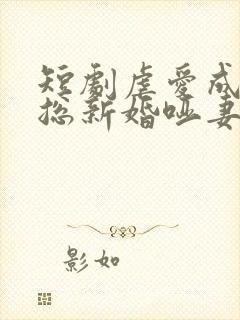 短剧虐爱成
总新婚哑妻
影如